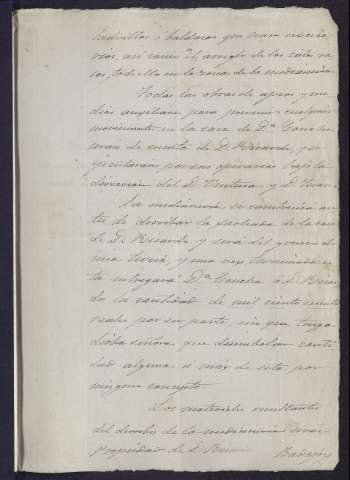 ladrillos ó baldosas que sean necesa
rios, asi como el arreglo de los cielos ra
sos, todo ello en la zona de la medianeria
Todas las obras de apeos y me
dios auxiliares para prevenir cualquier
movimiento en la casa de D.ª
seran de cuenta de D. Ricardo, y se
ejecutaran por sus operarios bajo la
direccion del D. Ventura y D.
La medianeria se construira an
tes de derribar la fachada de la casa
de D. Ricardo y será del grueso de
una tercia, y una vez terminada es
ta entregará D.ª á D. Ricar
do la cantidad de mil ciento
reales por su parte, sin que tenga
dicha señora que desembolsar canti
dad alguna a mas de esta por
ningun concepto
Los materiales resultantes
del derribo de la medianeria seran
propiedad de D. Ricar
Badajoz